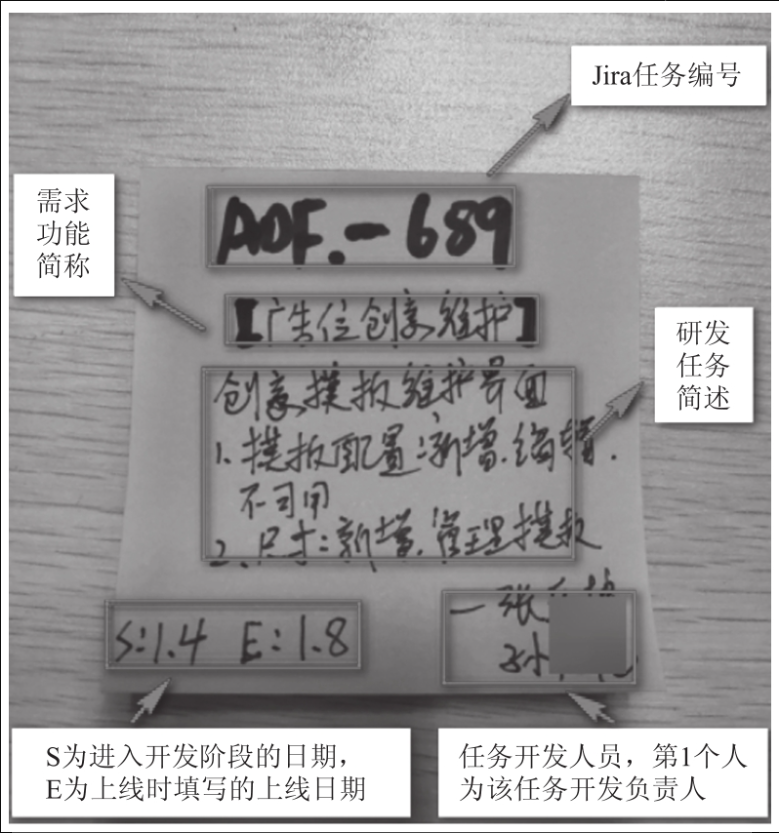 Jira任务编号
需求
功能
简称
ADF.-689
【广告位创意维护】
研发
任务
简述
创意模板维护界面
1、模板配置：新增.编辑.
不可用
2、尺寸：新增.管理模板
S:1.4 E:1.8
一张
孙
S为进入开发阶段的日期，
E为上线时填写的上线日期
任务开发人员，第1个人
为该任务开发负责人